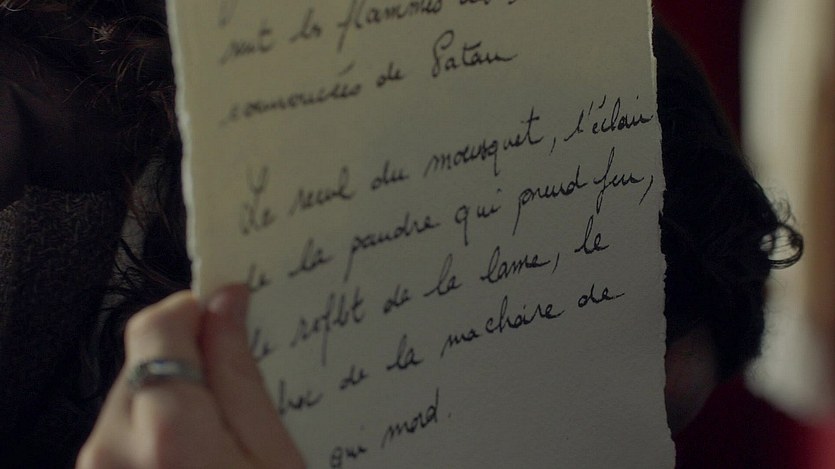 sont les flammes
convoquées de Satan
Le recul du mousquet, l'éclair
de la poudre qui prend feu,
le reflet de la lame, le
choc de la machoire de
qui mord.